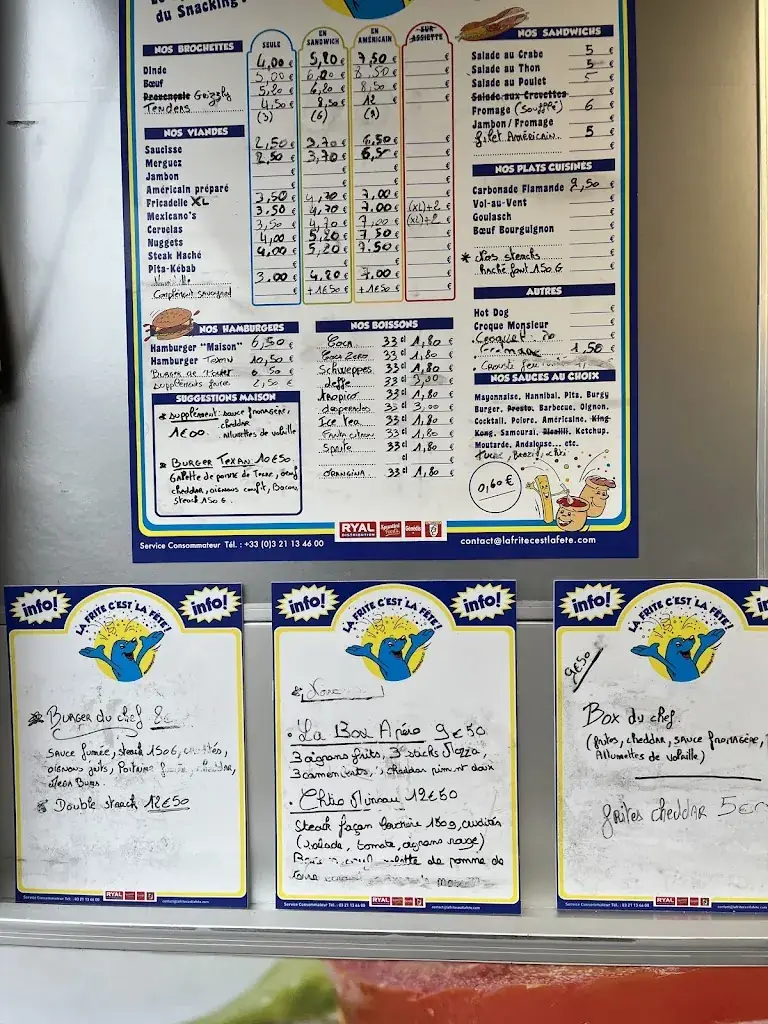 du Snacking!
NOS BROCHETTES
SEULE
EN SANDWICH
EN AMÉRICAIN
SUR ASSIETTE
Dinde 4,00 € 5,20 € 7,50 € €
Bœuf 5,00 € 6,20 € 8.50 € €
Provençale Grizzly 5,20 € 6,20 € 8,50 € €
Tenders 4,50 € 8,50 € 12 € €
(3) (6) (9)
NOS VIANDES
Saucisse 2,50 € 3.70 € 6,50 € €
Merguez 2,50 € 3,70 € 6,50 €
Jambon
Américain préparé
Fricadelle XL 3,50 € 4,70 € 7,00 €
Mexicano's 3.50 € 4,70 € 7.00 € (XL)+2 €
Cervelas 3,50 € 4,70 € 7,00 € (XL)+2 €
Nuggets 4,00 € 5,20 € 7,50 €
Steak Haché 4,00 € 5,20 € 7.50 €
Pita-Kébab
3.00 € 4.20 € 7.00 €
Complément +1€50 € +1€50 €
NOS HAMBURGERS
Hamburger "Maison" 6,50 €
Hamburger Texan 10,50 €
Burger 6 50 €
Suppléments 2,50 €
SUGGESTIONS MAISON
* Supplément: sauce fromagère,
cheddar
1€00. Allumettes de volaille
* Burger Texan 10€50
Galette de pomme de Terre, oeuf
cheddar, oignons confit, Bacon,
steack 150 G.
NOS BOISSONS
Coca 33 cl 1,80 €
Coca Zero 33 cl 1,80 €
Schweppes 33 cl 1,80 €
deffe 33 cl 3,00 €
tropico 33 cl 1,80 €
desperados 33 cl 3,00 €
Ice tea 33 cl 1,80 €
Fanta citron 33 cl 1,80 €
Sprite 33 cl 1,80 €
cl €
ORANGINA 33 cl 1,80 €
NOS SANDWICHS
Salade au Crabe 5 €
Salade au Thon 5 €
Salade au Poulet 5 €
Salade aux Crevettes €
Fromage (soufflé) 6 €
Jambon / Fromage €
filet Américain 5 €
€
NOS PLATS CUISINÉS
Carbonade Flamande 9,50 €
Vol-au-Vent €
Goulasch €
Bœuf Bourguignon €
* Nos steacks €
haché font 150 G €
AUTRES
Hot Dog €
Croque Monsieur €
€
fromage 1.50 €
€
NOS SAUCES AU CHOIX
Mayonnaise, Hannibal, Pita, Burgy
Burger, Presto, Barbecue, Oignon,
Cocktail, Poivre, Américaine, King
Kong, Samouraï, Picalili, Ketchup,
Moutarde, Andalouse... etc.
Brazil,
0,60 €
RYAL
DISTRIBUTION
Service Consommateur Tél. : +33 (0)3 21 13 46 00
contact@lafritecestlafete.com
info!
LA FRITE C'EST LA FÊTE!
info!
* Burger du chef 8€
sauce fumée, steack 150G,
oignons frits, Poitrine fumée, cheddar,
Mega Buns.
* Double steack 12€50
RYAL
Service Consommateur Tél. : 03 21 13 46 00
contact@lafritecestlafete.com
info!
LA FRITE C'EST LA FÊTE!
info!
• La Box Apéro 9€50
3 oignons frits, 3 sticks Mozza,
3 camemberts, 3 cheddar piment doux
• 12€50
Steack façon bouchère 180g, crudités
(salade, tomate, oignons rouge)
galette de pomme de
terre
RYAL
Service Consommateur Tél. : 03 21 13 46 00
contact@lafritecestlafete.com
info!
LA FRITE C'EST LA FÊTE!
9€50
Box du chef.
(frites, cheddar, sauce fromagère,
Allumettes de volaille)
frites cheddar 5€
RYAL
Service Consommateur Tél. : 03 21 13 46 00
contact@lafritecestlafete.com